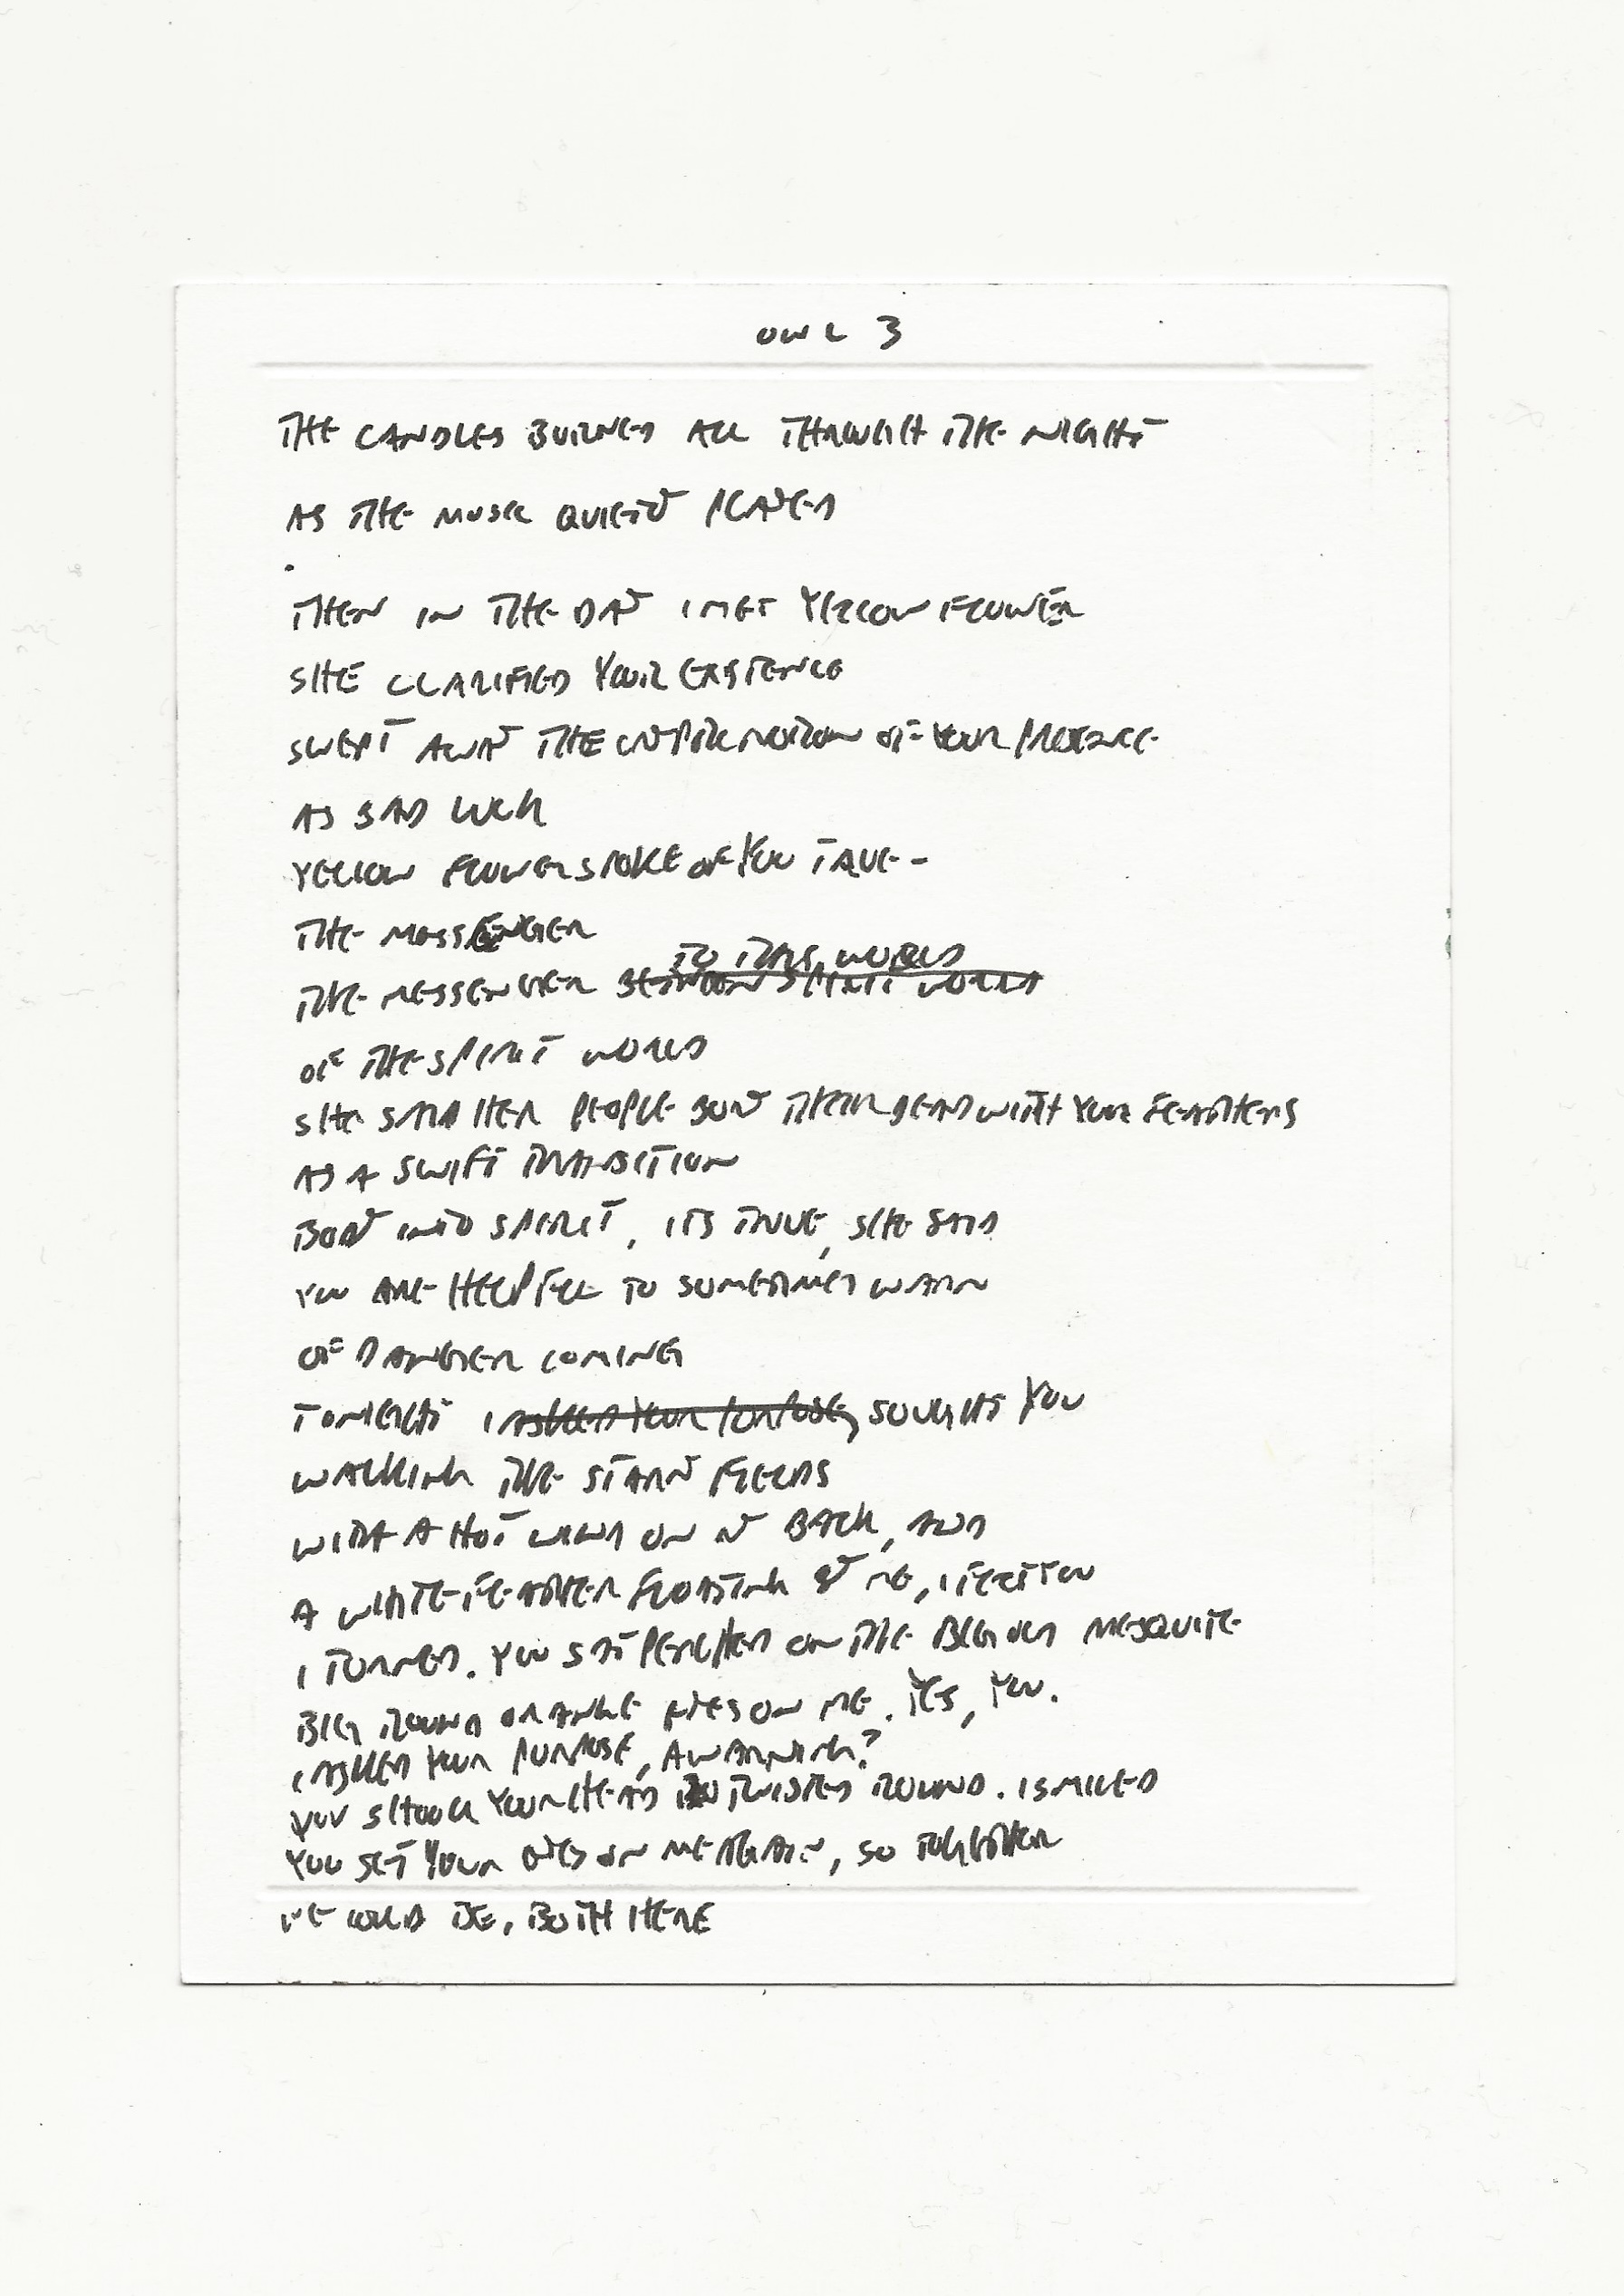 OWL 3
THE CANDLES BURNED ALL THROUGH THE NIGHT
AS THE MUSIC QUIETLY PLAYED
THEN IN THE DAY I MET YELLOW FLOWER
SHE CLARIFIED YOUR EXISTENCE
SWEPT AWAY THE OF YOUR PRESENCE
AS BAD LUCK
YELLOW FLOWER SPOKE OF YOU TRUE -
THE MESSENGER
TO THIS WORLD
THE MESSENGER BETWEEN SPIRIT WORLD
OF THE SPIRIT WORLD
SHE SAID HER PEOPLE BURY THEIR DEAD WITH YOUR FEATHERS
AS A SWIFT TRANSITION
BODY INTO SPIRIT, IT'S TRUE, SHE SAID
YOU ARE HELPFUL TO SOMETIMES WARN
OF DANGER COMING
TONIGHT I ASKED YOUR PURPOSE, SOUGHT YOU
WALKING THE STARRY FIELDS
WITH A HOT WIND ON MY BACK, AND
A WHITE FEATHER FLOATING BY ME, I FELT YOU
I TURNED. YOU SAT PERCHED ON THE BIG OLD MESQUITE
BIG ROUND ORANGE EYES ON ME. YES, YOU.
I ASKED YOUR PURPOSE, A WARNING?
YOU SHOOK YOUR HEAD TWISTED ROUND. I SMILED
YOU SET YOUR EYES ON ME AGAIN, SO TOGETHER
WE COULD BE, BOTH HERE